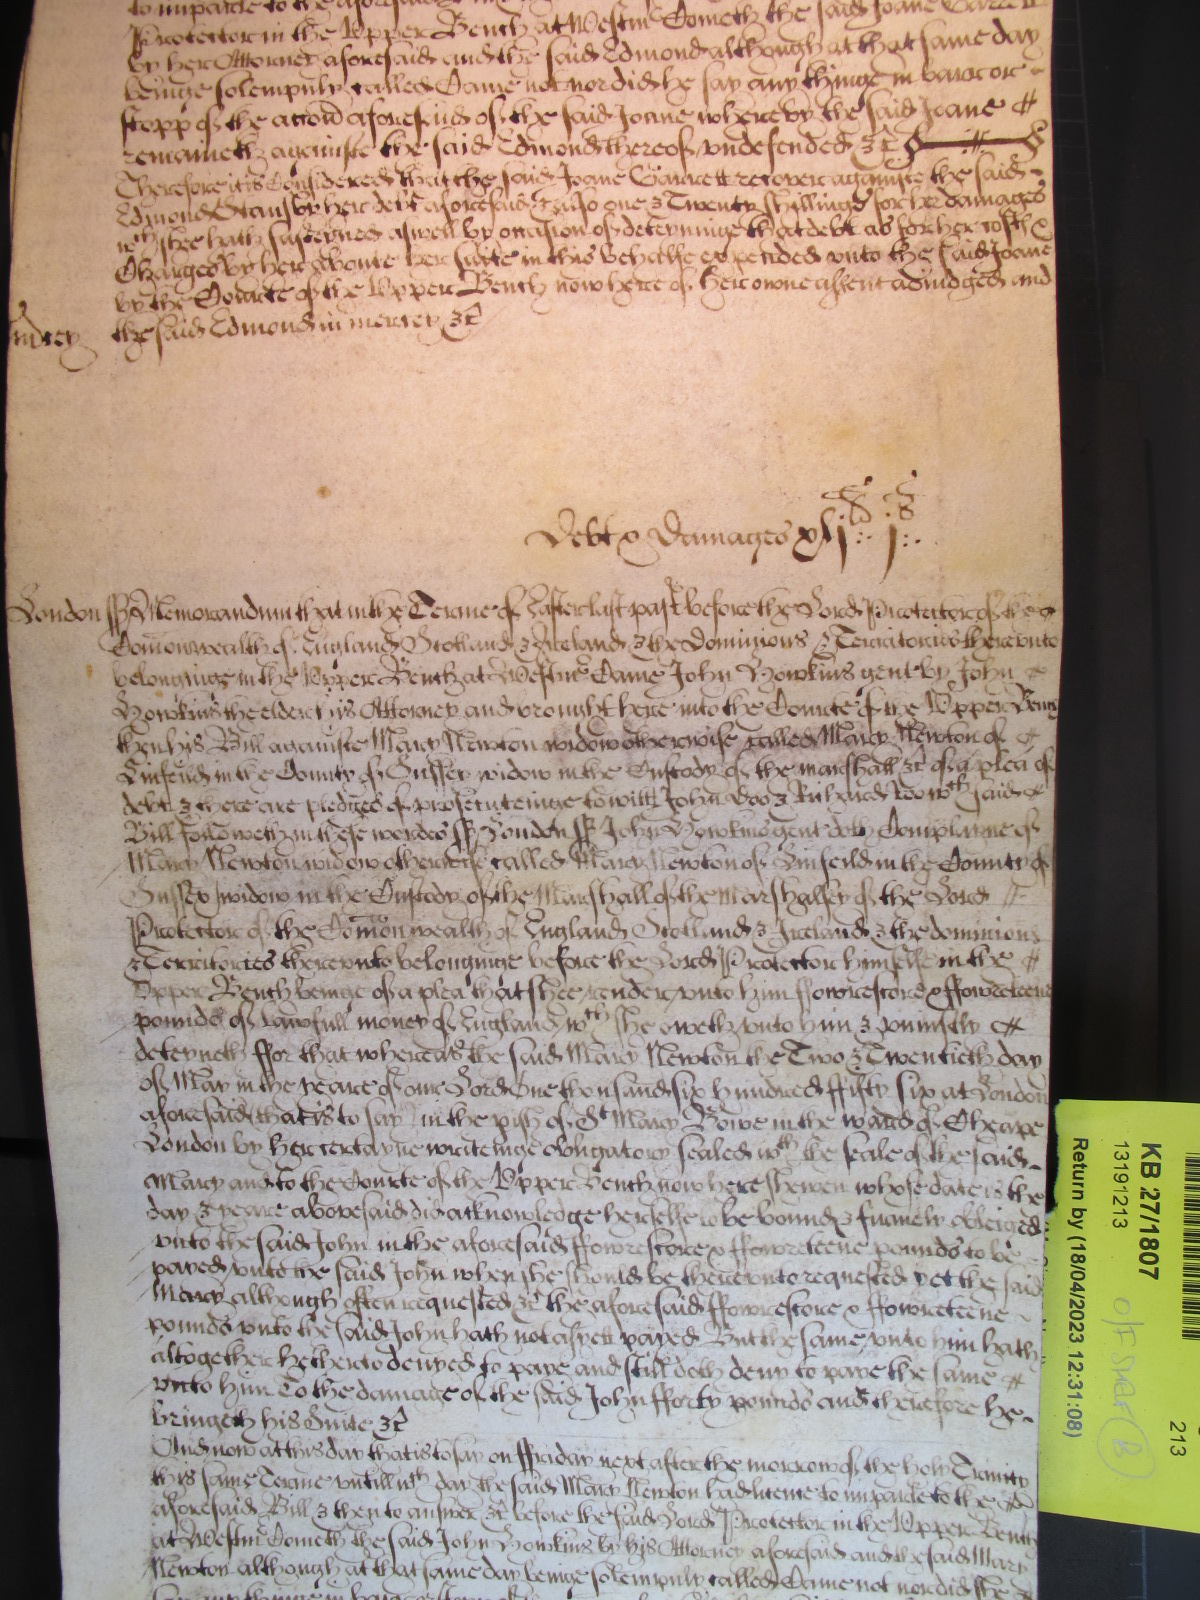 to imparle to the aforesaid
Protector in the Upper Bench at Westm Cometh the said Joane Garrett
by her Attorney aforesaid and the said Edmond although at that same day
beinge solempnly called Came not nor did he say any thinge in barr or
stopp of the accon aforesaid of the said Joane whereby the said Joane
remaineth againste the said Edmond thereof undefended &c
Therefore it is Considered that the said Joane Garrett recover againste the said
Edmond her debt aforesaid & also one & Twenty shillings for her damages
wch shee hath susteyned aswell by occasion of deteyninge that debt as for her costs &
Charges by her aboute her suite in this behalfe expended unto the said Joane
by the Courte of the Upper Bench now here of her owne assent adiudged and
the said Edmond in mercy &c
Debt & Damages
London ss Memorandum that in the Terme of Easter last past before the Lord Protector of the
Comonwealth of England Scotland & Ireland & the Dominions & Territories thereunto
belonginge in the Upper Bench at Westmr Came John Howkins gent by John
Howkins the elder his Attorney and brought here into the Courte of the Upper Bench
then his Bill againste Mary Newton widow otherwise called Mary Newton of
Linfeild in the County of Sussex widow in the Custody of the marshall &c of a plea of
debt & there are pledges of prosecuteinge to witt John Doo & Richard Roo wch said
Bill followeth in these wordes ss London ss John Howkins gent doth Complaine of
Mary Newton widow otherwise called Mary Newton of Linfeild in the County of
Sussex widow in the Custody of the Marshall of the Marshalsey of the Lord
Protector of the Comonwealth of England Scotland & Ireland & the dominions
& Territories thereunto belonginge before the Lord Protector himselfe in the
Upper Bench beinge of a plea that shee render unto him ffowrescore & ffowreteene
pounds of lawfull money of England wch she oweth unto him & uniustly
deteyneth ffor that whereas the said Mary Newton the Two & Twentieth day
of May in the yeare of our Lord One thousand six hundred ffifty six at London
aforesaid that is to say in the pish of St Mary Bowe in the ward of Cheape
London by her certayne writeinge obligatory sealed wth the seale of the said
Mary and to the Courte of the Upper Bench now here shewen whose date is the
day & yeare abovesaid did acknowledge herselfe to be bound & firmely obleiged
unto the said John in the aforesaid ffowrescore & ffowreteene pounds to be
payed unto the said John when she should be thereunto requested yet the said
Mary although often requested &c the aforesaid ffowrescore & ffowreteene
pounds unto the said John hath not as yett payed But the same unto him hath
altogether hetherto denyed to paye and still doth deny to paye the same
unto him To the damage of the said John fforty pounds and therefore he
bringeth his Suite &c
And now at this day that is to say on ffriday next after the morrow of the holy Trinity
this same Terme untill wch day the said Mary Newton had licence to imparle to the
aforesaid Bill & then to answer &c before the said Lord Protector in the Upper Bench
at Westm Cometh the said John Howkins by his Attorney aforesaid and the said Mary
Newton although at that same day beinge solempnly called Came not nor did she
say any thinge in barr or
KB 27/1807
13191213
Return by (18/04/2023 12:31:08)
213